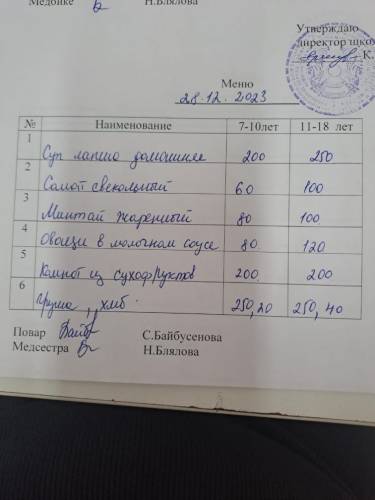 Медбике Н.Блялова
Утверждаю
директор шко
К.
Меню
28.12.2023
№ Наименование 7-10лет 11-18 лет
1 Суп лапша домашнее 200 250
2 Салат свекольный 60 100
3 Минтай жаренный 80 100
4 Овощи в молочном соусе 80 120
5 Компот из сухофруктов 200 200
6 Груша, хлеб 250,20 250,40
Повар С.Байбусенова
Медсестра Н.Блялова